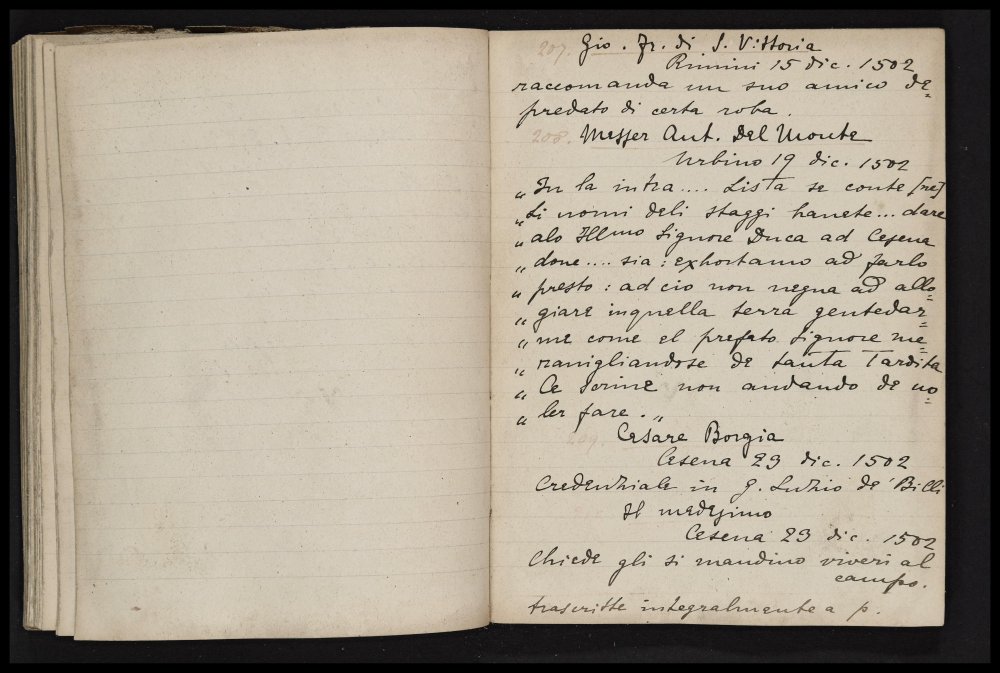 207. Gio. Fr. di S. Vittoria
Rimini 15 dic. 1502
raccomanda un suo amico de=
predato di certa roba.
208. Messer Ant. Del Monte
Urbino 19 dic. 1502
„ In la intra.... Lista se conte [ne]
„ Li nomi deli staggi havete... dare
„ alo Illmo Signore Duca ad Cesena
„ done.... sia: exhortamo ad farlo
„ presto: ad cio non vegna ad allo=
„ giare in quella terra gentedar=
„ me come el prefato Signore me=
„ ravigliandose de tanta Tardita
„ Ce Scrive non andando de vo=
„ ler fare. „
209. Cesare Borgia
Cesena 23 dic. 1502
Credenziale in g. Luzio de' Billi
Il medesimo
Cesena 23 dic. 1502
Chiede gli si mandino viveri al
campo.
trascritte integralmente a p.